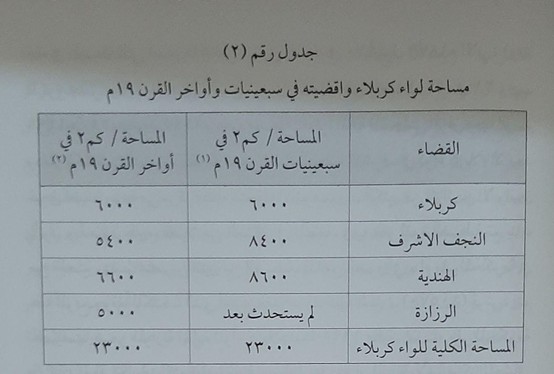 جدول رقم (٢)
مساحة لواء كربلاء واقضيته في سبعينيات وأواخر القرن ١٩م
القضاء المساحة / كم٢ في سبعينيات القرن ١٩م (١) المساحة / كم٢ في أواخر القرن ١٩م (٢)
كربلاء ٦٠٠٠ ٦٠٠٠
النجف الاشرف ٨٤٠٠ ٥٤٠٠
الهندية ٨٦٠٠ ٦٦٠٠
الرزازة لم يستحدث بعد ٥٠٠٠
المساحة الكلية للواء كربلاء ٢٣٠٠٠ ٢٣٠٠٠